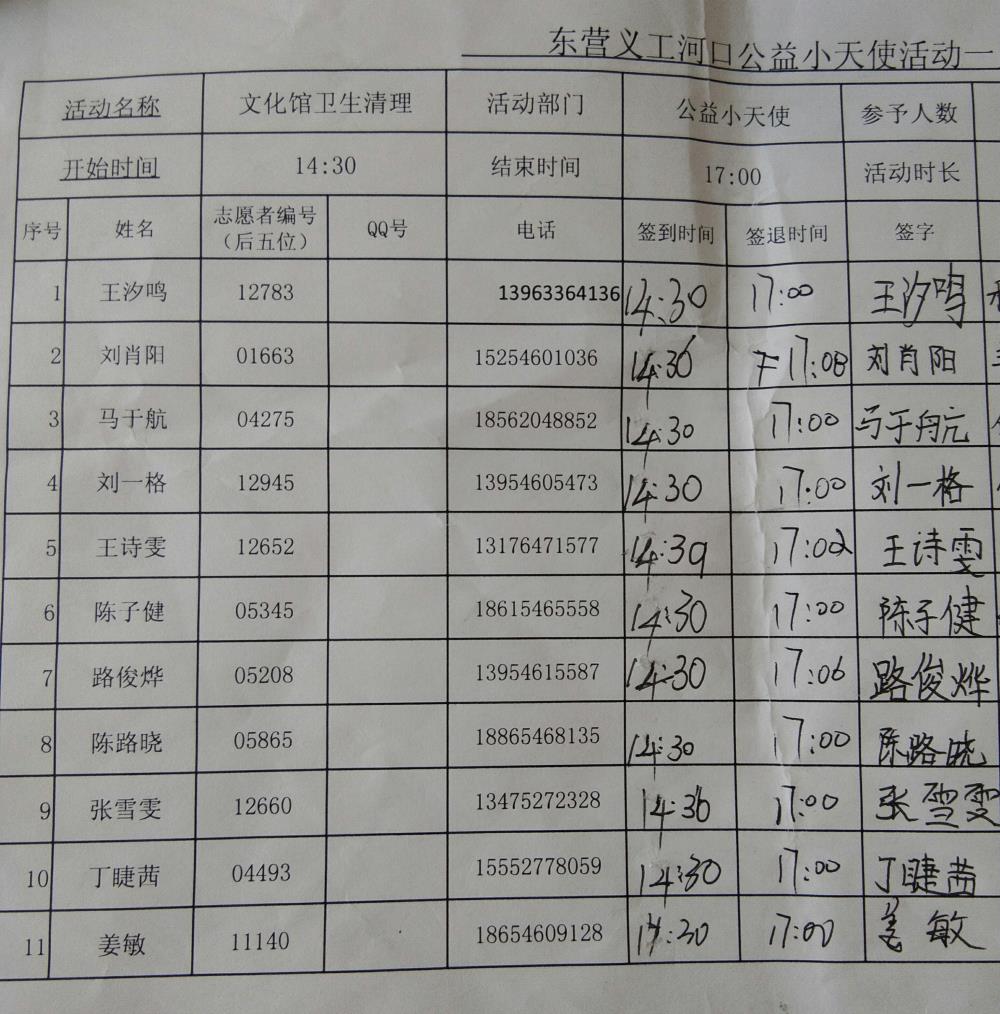 东营义工河口公益小天使活动一
活动名称 文化馆卫生清理 活动部门 公益小天使 参予人数
开始时间 14:30 结束时间 17:00 活动时长
序号 姓名 志愿者编号（后五位） QQ号 电话 签到时间 签退时间 签字
1 王汐鸣 12783 13963364136 14:30 17:00 王汐鸣
2 刘肖阳 01663 15254601036 14:30 17:08 刘肖阳
3 马于航 04275 18562048852 14:30 17:00 马于航
4 刘一格 12945 13954605473 14:30 17:00 刘一格
5 王诗雯 12652 13176471577 14:30 17:02 王诗雯
6 陈子健 05345 18615465558 14:30 17:00 陈子健
7 路俊烨 05208 13954615587 14:30 17:06 路俊烨
8 陈路晓 05865 18865468135 14:30 17:00 陈路晓
9 张雪雯 12660 13475272328 14:36 17:00 张雪雯
10 丁睫茜 04493 15552778059 14:30 17:00 丁睫茜
11 姜敏 11140 18654609128 14:30 17:00 姜敏